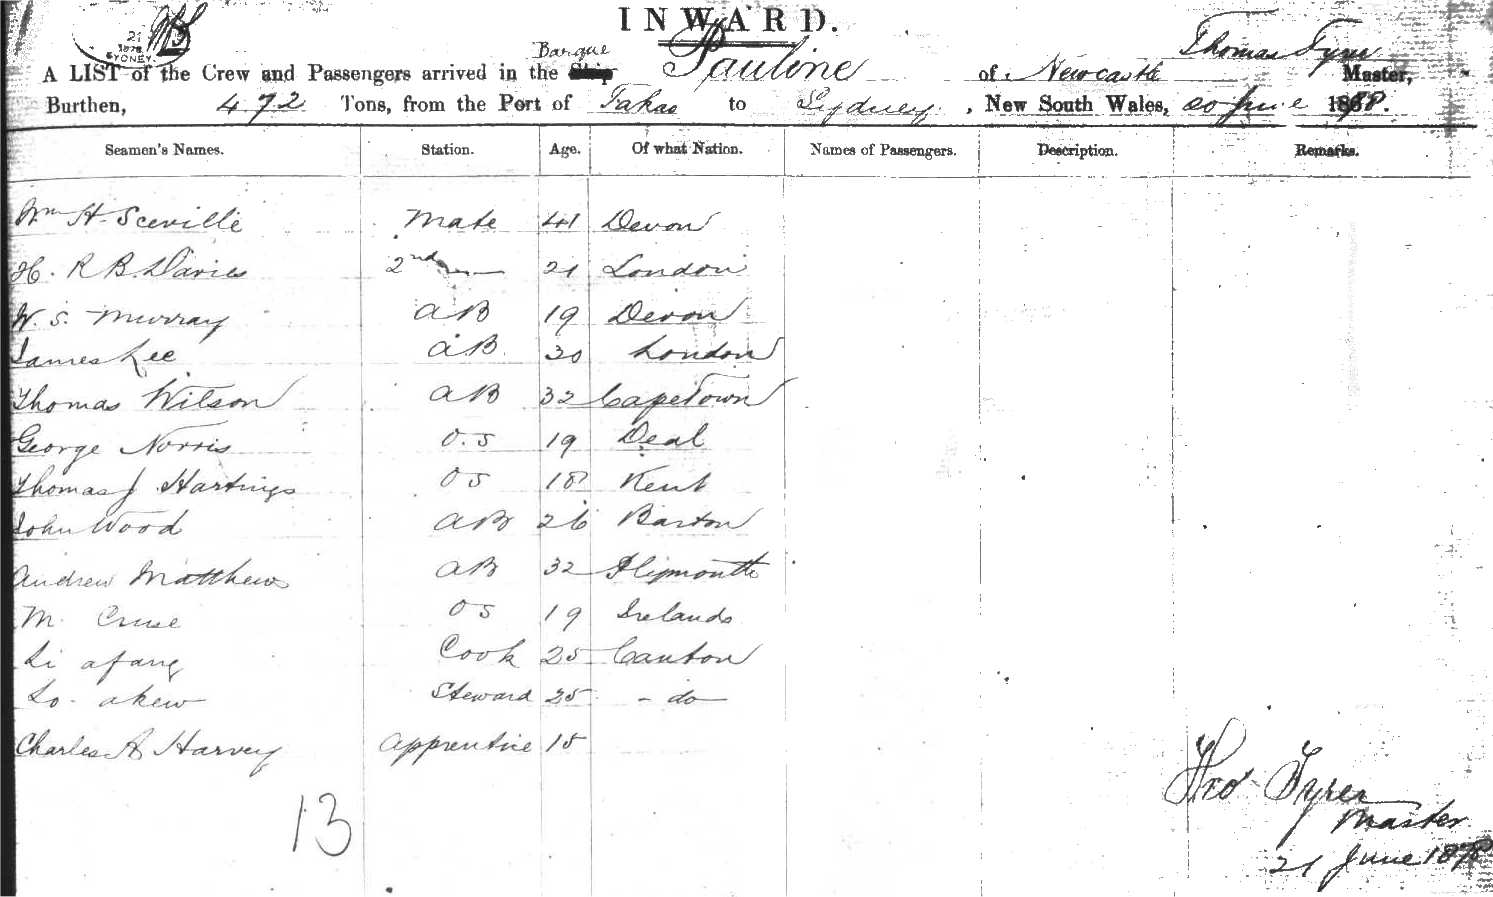 INWARD.
21
1878
SYDNEY
Barque
Thomas Tyrer
A LIST of the Crew and Passengers arrived in the Ship Pauline of Newcastle Master,
Burthen, 472 Tons, from the Port of Takao to Sydney, New South Wales, 20 June 1878.
Seamen's Names. Station. Age. Of what Nation. Names of Passengers. Description. Remarks.
Wm H. Sceville Mate 41 Devon
H. R B. Davies 2nd 21 London
W. S. Murray AB 19 Devon
James Lee AB 30 London
Thomas Wilson AB 32 Capetown
George Norris O.S 19 Deal
Thomas J Hartings OS 18 Kent
John Wood AB 26 Barton
Andrew Matthews AB 32 Plymouth
M. Cruse OS 19 Irelands
Li afang Cook 25 Canton
Lo. akew Steward 25 - do -
Charles A Harvey Apprentice 15
13
Tyrer
Master
21 June 1878